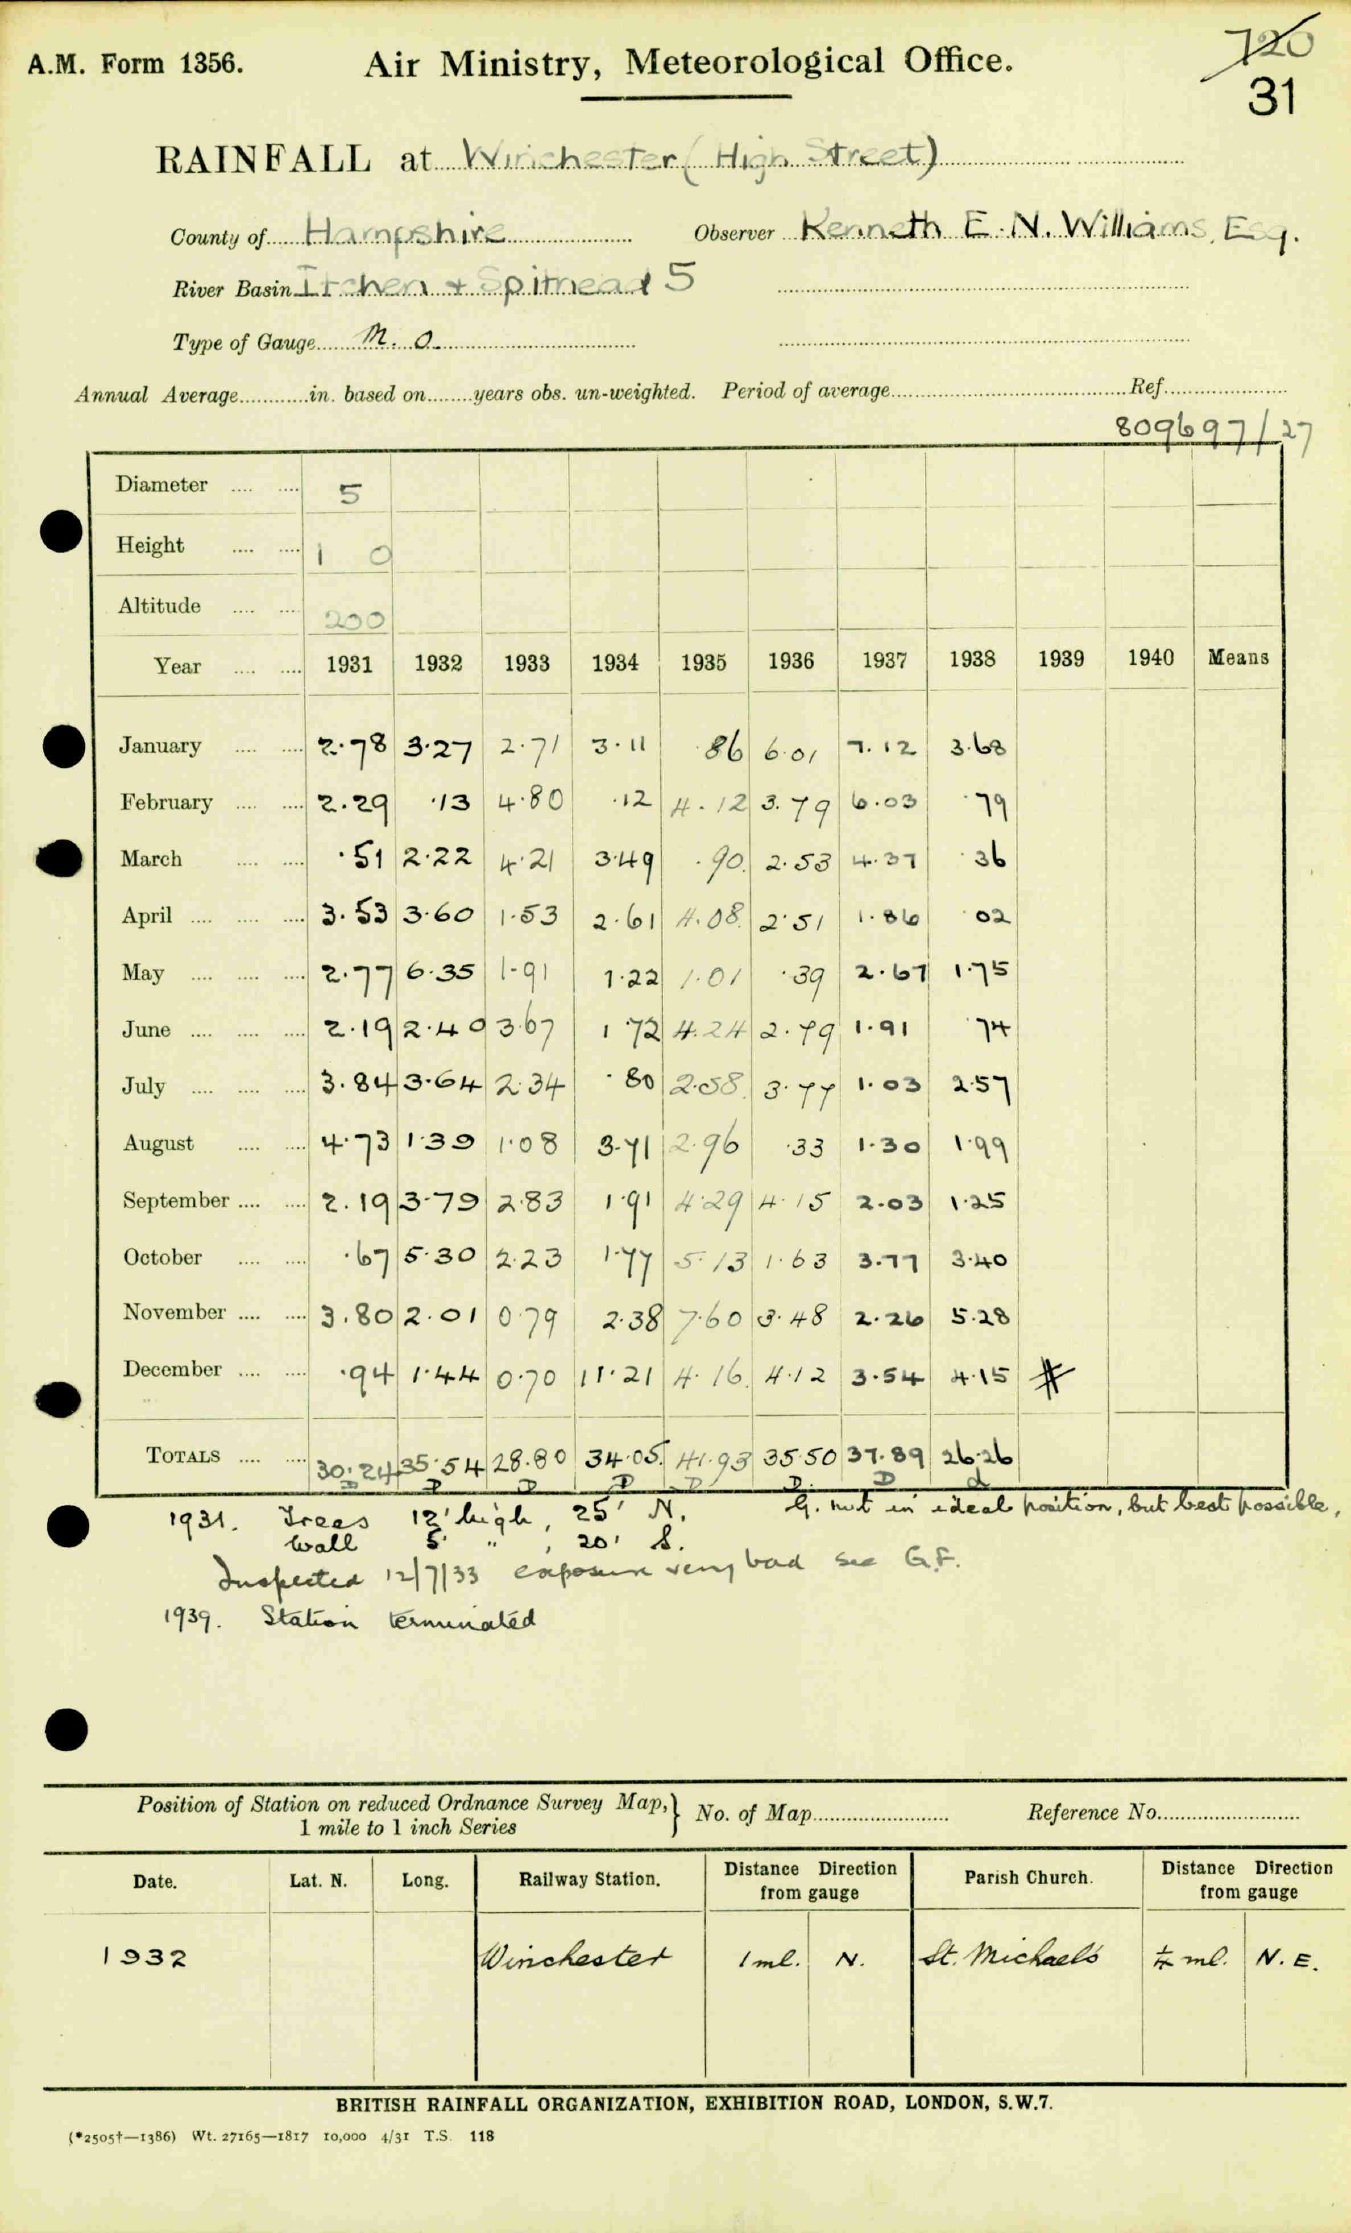 720
A.M. Form 1356. Air Ministry, Meteorological Office.
31
RAINFALL at Winchester (High Street)
County of Hampshire Observer Kenneth E. N. Williams, Esq.
River Basin Itchen + Spithead 5
Type of Gauge M. O.
Annual Average in. based on years obs. un-weighted. Period of average Ref.
809697/27
Diameter 5
Height 1 0
Altitude 200
Year 1931 1932 1933 1934 1935 1936 1937 1938 1939 1940 Means
January 2.78 3.27 2.71 3.11 .86 6.01 7.12 3.68
February 2.29 .13 4.80 .12 4.12 3.79 6.03 .79
March .51 2.22 4.21 3.49 .90 2.53 4.37 .36
April 3.53 3.60 1.53 2.61 4.08 2.51 1.86 .02
May 2.77 6.35 1.91 1.22 1.01 .39 2.67 1.75
June 2.19 2.40 3.67 1.72 4.24 2.79 1.91 .74
July 3.84 3.64 2.34 .80 2.58 3.77 1.03 2.57
August 4.73 1.39 1.08 3.71 2.96 .33 1.30 1.99
September 2.19 3.79 2.83 1.91 4.29 4.15 2.03 1.25
October .67 5.30 2.23 1.77 5.13 1.63 3.77 3.40
November 3.80 2.01 0.79 2.38 7.60 3.48 2.26 5.28
December .94 1.44 0.70 11.21 4.16 4.12 3.54 4.15
TOTALS 30.24 35.54 28.80 34.05 41.93 35.50 37.89 26.26
D D D D D D D d
1931. Trees 12' high, 25' N. G. not in ideal position, but best possible,
Wall 5' " , 20' S.
Inspected 12/7/33 exposure very bad see G.F.
1939. Station terminated
Position of Station on reduced Ordnance Survey Map, 1 mile to 1 inch Series } No. of Map Reference No.
Date. Lat. N. Long. Railway Station. Distance Direction from gauge Parish Church. Distance Direction from gauge
1932 Winchester 1 ml. N. St. Michael's ¼ ml. N. E.
BRITISH RAINFALL ORGANIZATION, EXHIBITION ROAD, LONDON, S.W.7.
(*2505†—1386) Wt. 27165—1817 10,000 4/31 T.S. 118